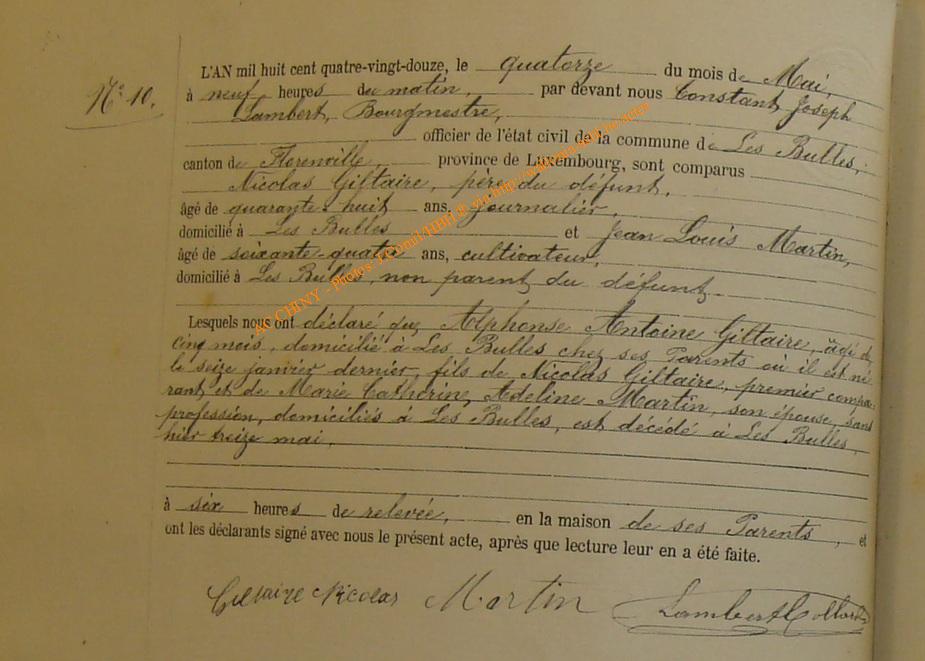 N° 10.
L'AN mil huit cent quatre-vingt-douze, le quatorze du mois de Mai,
à neuf heures du matin, par devant nous Constant Joseph
Lambert, Bourgmestre,
officier de l'état civil de la commune de Les Bulles,
canton de Florenville, province de Luxembourg, sont comparus
Nicolas Giltaire, père du défunt,
âgé de quarante-huit ans, journalier,
domicilié à Les Bulles et Jean Louis Martin,
âgé de soixante-quatre ans, cultivateur,
domicilié à Les Bulles, non parent du défunt
Lesquels nous ont déclaré que Alphonse Antoine Giltaire, âgé de
cinq mois, domicilié à Les Bulles chez ses Parents où il est né
le seize janvier dernier, fils de Nicolas Giltaire, premier compa-
rant, et de Marie Catherine Adeline Martin, son épouse, sans
profession, domiciliés à Les Bulles, est décédé à Les Bulles,
hier treize mai,
à six heures de relevée, en la maison de ses Parents, et
ont les déclarants signé avec nous le présent acte, après que lecture leur en a été faite.
Giltaire Nicolas Martin Lambert
AC CHINY - Photos